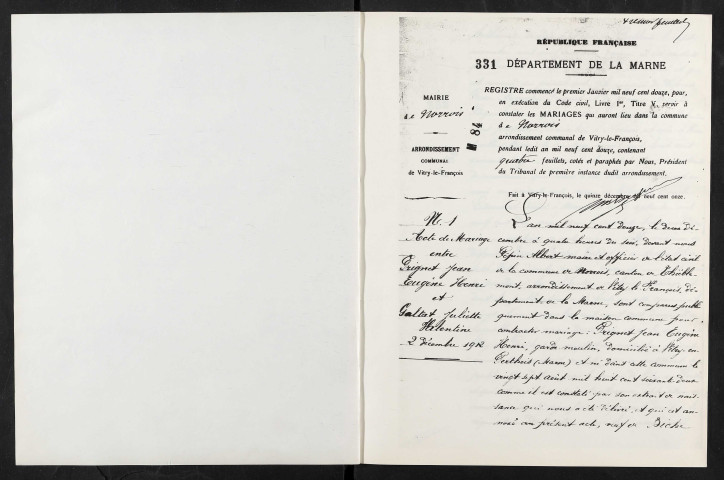 premier feuillet
RÉPUBLIQUE FRANÇAISE
331 DÉPARTEMENT DE LA MARNE
MAIRIE
de Norrois
ARRONDISSEMENT
COMMUNAL
de Vitry-le-François
M 84
REGISTRE commencé le premier Janvier mil neuf cent douze, pour,
en exécution du Code civil, Livre Ier, Titre V, servir à
constater les MARIAGES qui auront lieu dans la commune
de Norrois
arrondissement communal de Vitry-le-François,
pendant ledit an mil neuf cent douze, contenant
quatre feuillets, cotés et paraphés par Nous, Président
du Tribunal de première instance dudit arrondissement.
Fait à Vitry-le-François, le quinze décembre mil neuf cent onze.
N. 1
Acte de Mariage
entre
Prignet Jean
Eugène Henri
et
Juliette
2 Décembre 1912
L'an mil neuf cent douze, le deux Dé-
cembre à quatre heures du soir, devant nous
Albert maire et officier de l'état civil
de la commune de Norrois, canton de Thiéble-
mont, arrondissement de Vitry le François, dé-
partement de la Marne, sont comparus publi-
quement dans la maison commune pour
contracter mariage: Prignet Jean Eugène
Henri, garde moulin, domicilié à Vitry en
Perthois (Marne) et né dans cette commune le
vingt sept août mil huit cent soixante deux
comme il est constaté par son extrait de nais-
sance qui nous a été délivré et qui est an-
nexé au présent acte, veuf de